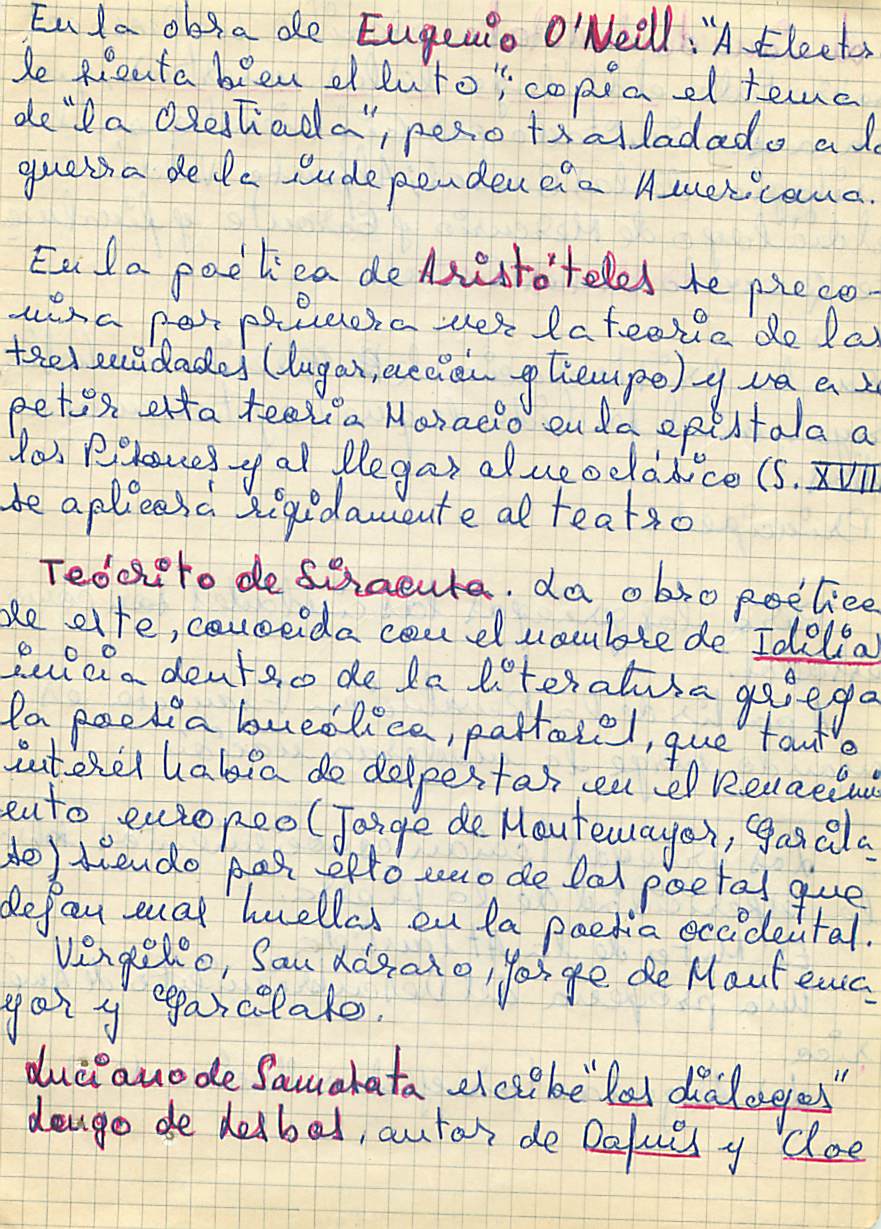 En la obra de Eugenio O'Neill: "A Electr
le sienta bien el luto"; copia el tema
de "la Orestiada", pero trasladado a la
guerra de la independencia Americana.
En la poética de Aristóteles se preco-
niza por primera vez la teoria de las
tres unidades (lugar, acción y tiempo) y va a r
petir esta teoria Horacio en la epistola a
los Pisones y al llegar al neoclásico (S. XVIII
se aplicará rigidamente al teatro
Teócrito de Siracusa. La obra poética
de este, conocida con el nombre de Idilia
inicia dentro de la literatura griega
la poesia bucólica, pastoril, que tanto
interés habia de despertar en el Renacimi
ento europeo (Jorge de Montemayor, Garcila-
so) siendo por esto uno de los poetas que
dejan mas huellas en la poesia occidental.
Virgilio, San Lázaro, Jorge de Montema-
yor y Garcilaso.
Luciano de Samosata escribe "los diálogos"
Longo de Lesbos, autor de Dafnis y Cloe